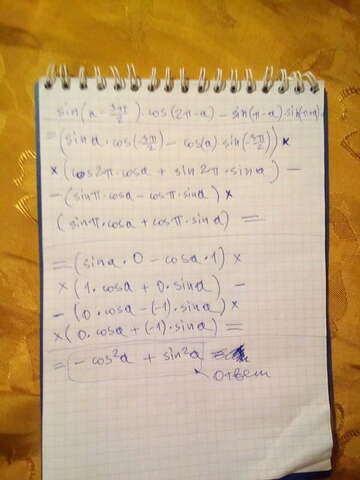 sin(α - 3π/2) · cos(2π-α) - sin(π-α) · sin(π+α)
= (sinα · cos(-3π/2) - cos(α) · sin(-3π/2)) ×
× (cos2π · cosα + sin2π · sinα) -
- (sinπ · cosα - cosπ · sinα) ×
(sinπ · cosα + cosπ · sinα) =
= (sinα · 0 - cosα · 1) ×
× (1 · cosα + 0 · sinα) -
- (0 · cosα - (-1) · sinα) ×
× (0 · cosα + (-1) · sinα) =
= - cos²α + sin²α
ответ